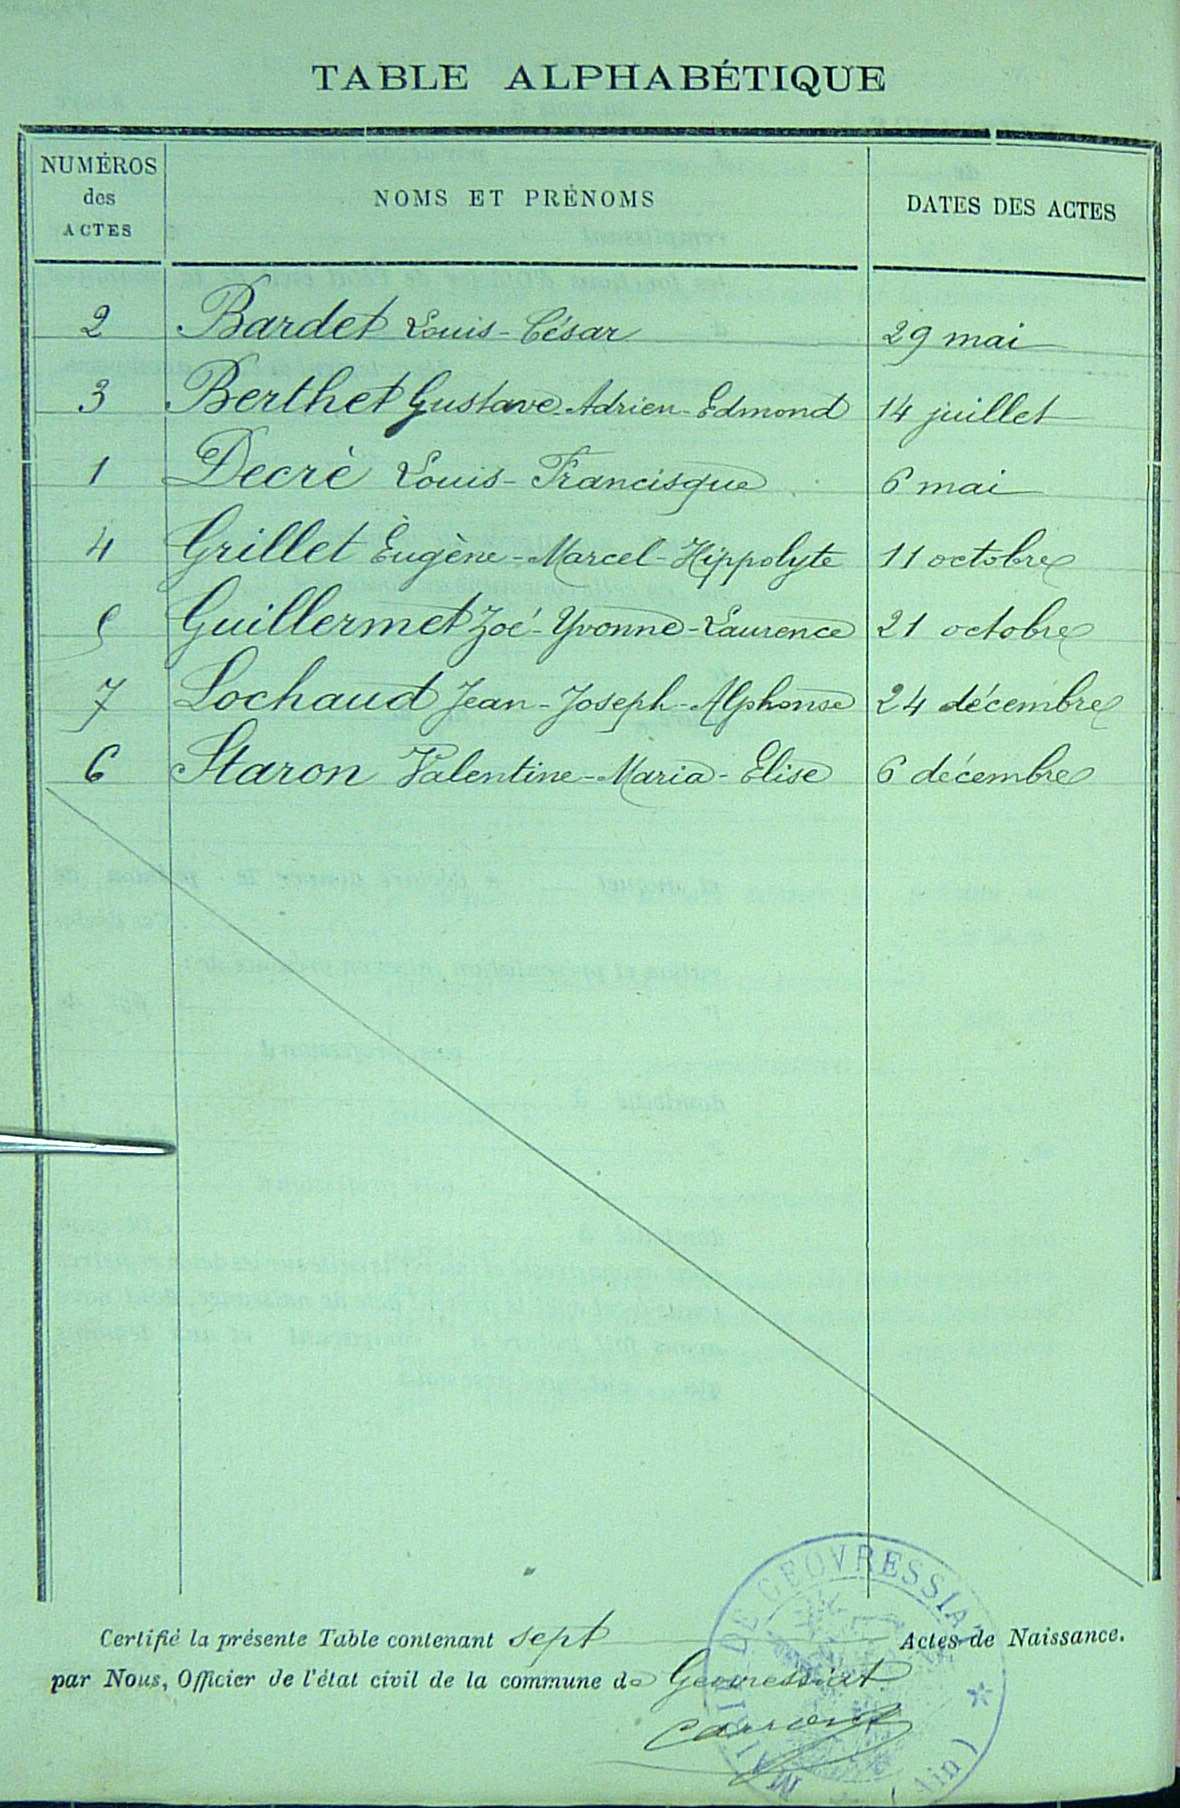 TABLE ALPHABÉTIQUE
NUMÉROS des ACTES NOMS ET PRÉNOMS DATES DES ACTES
2 Bardet Louis-César 29 mai
3 Berthet Gustave-Adrien-Edmond 14 juillet
1 Decrè Louis-Francisque 6 mai
4 Grillet Eugène-Marcel-Hippolyte 11 octobre
5 Guillermet Zoé-Yvonne-Laurence 21 octobre
7 Lochaud Jean-Joseph-Alphonse 24 décembre
6 Staron Valentine-Maria-Elise 6 décembre
Certifié la présente Table contenant sept Actes de Naissance.
par Nous, Officier de l'état civil de la commune de Geovressiat
MAIRIE DE GEOVRESSIAT (Ain)